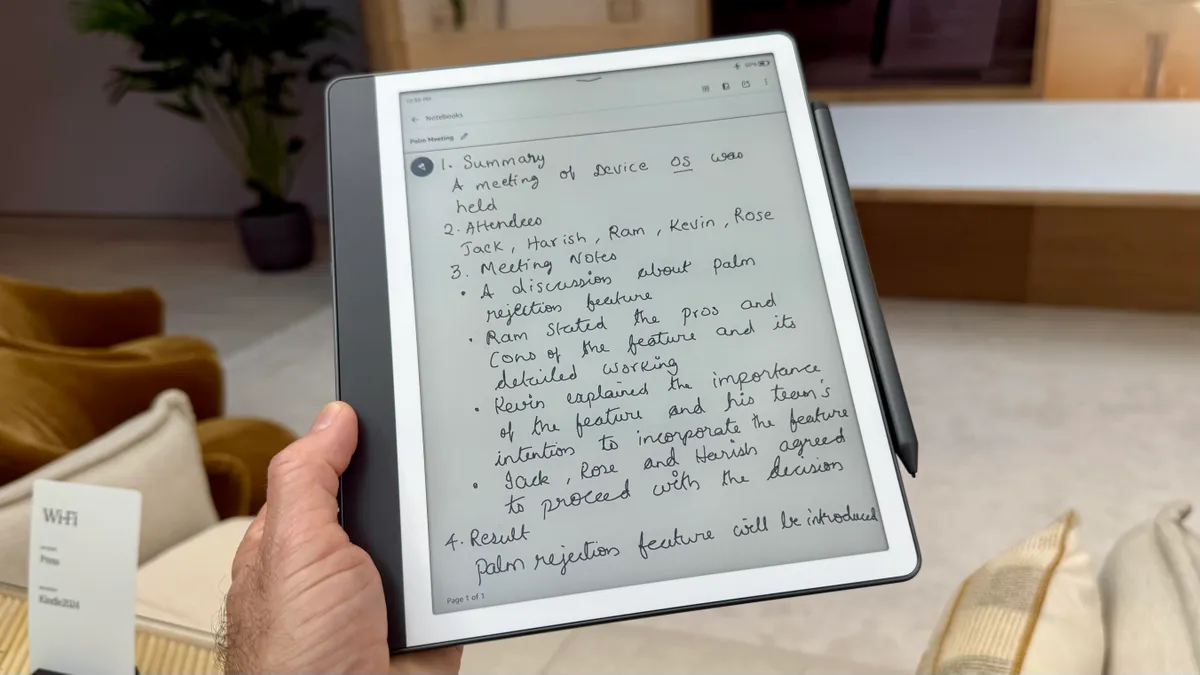 Notebooks
Palm Meeting
1. Summary
A meeting of Device OS was
held
2. Attendees
Jack, Harish, Ram, Kevin, Rose
3. Meeting Notes
• A discussion about palm
rejection feature
• Ram stated the pros and
Cons of the feature and its
detailed working
• Kevin explained the importance
of the feature and his team's
intention to incorporate the feature
• Jack, Rose and Harish agreed
to proceed with the decision
4. Result
Palm rejection feature will be introduced
Page 1 of 1
Wi-Fi
Press
Kindle2024